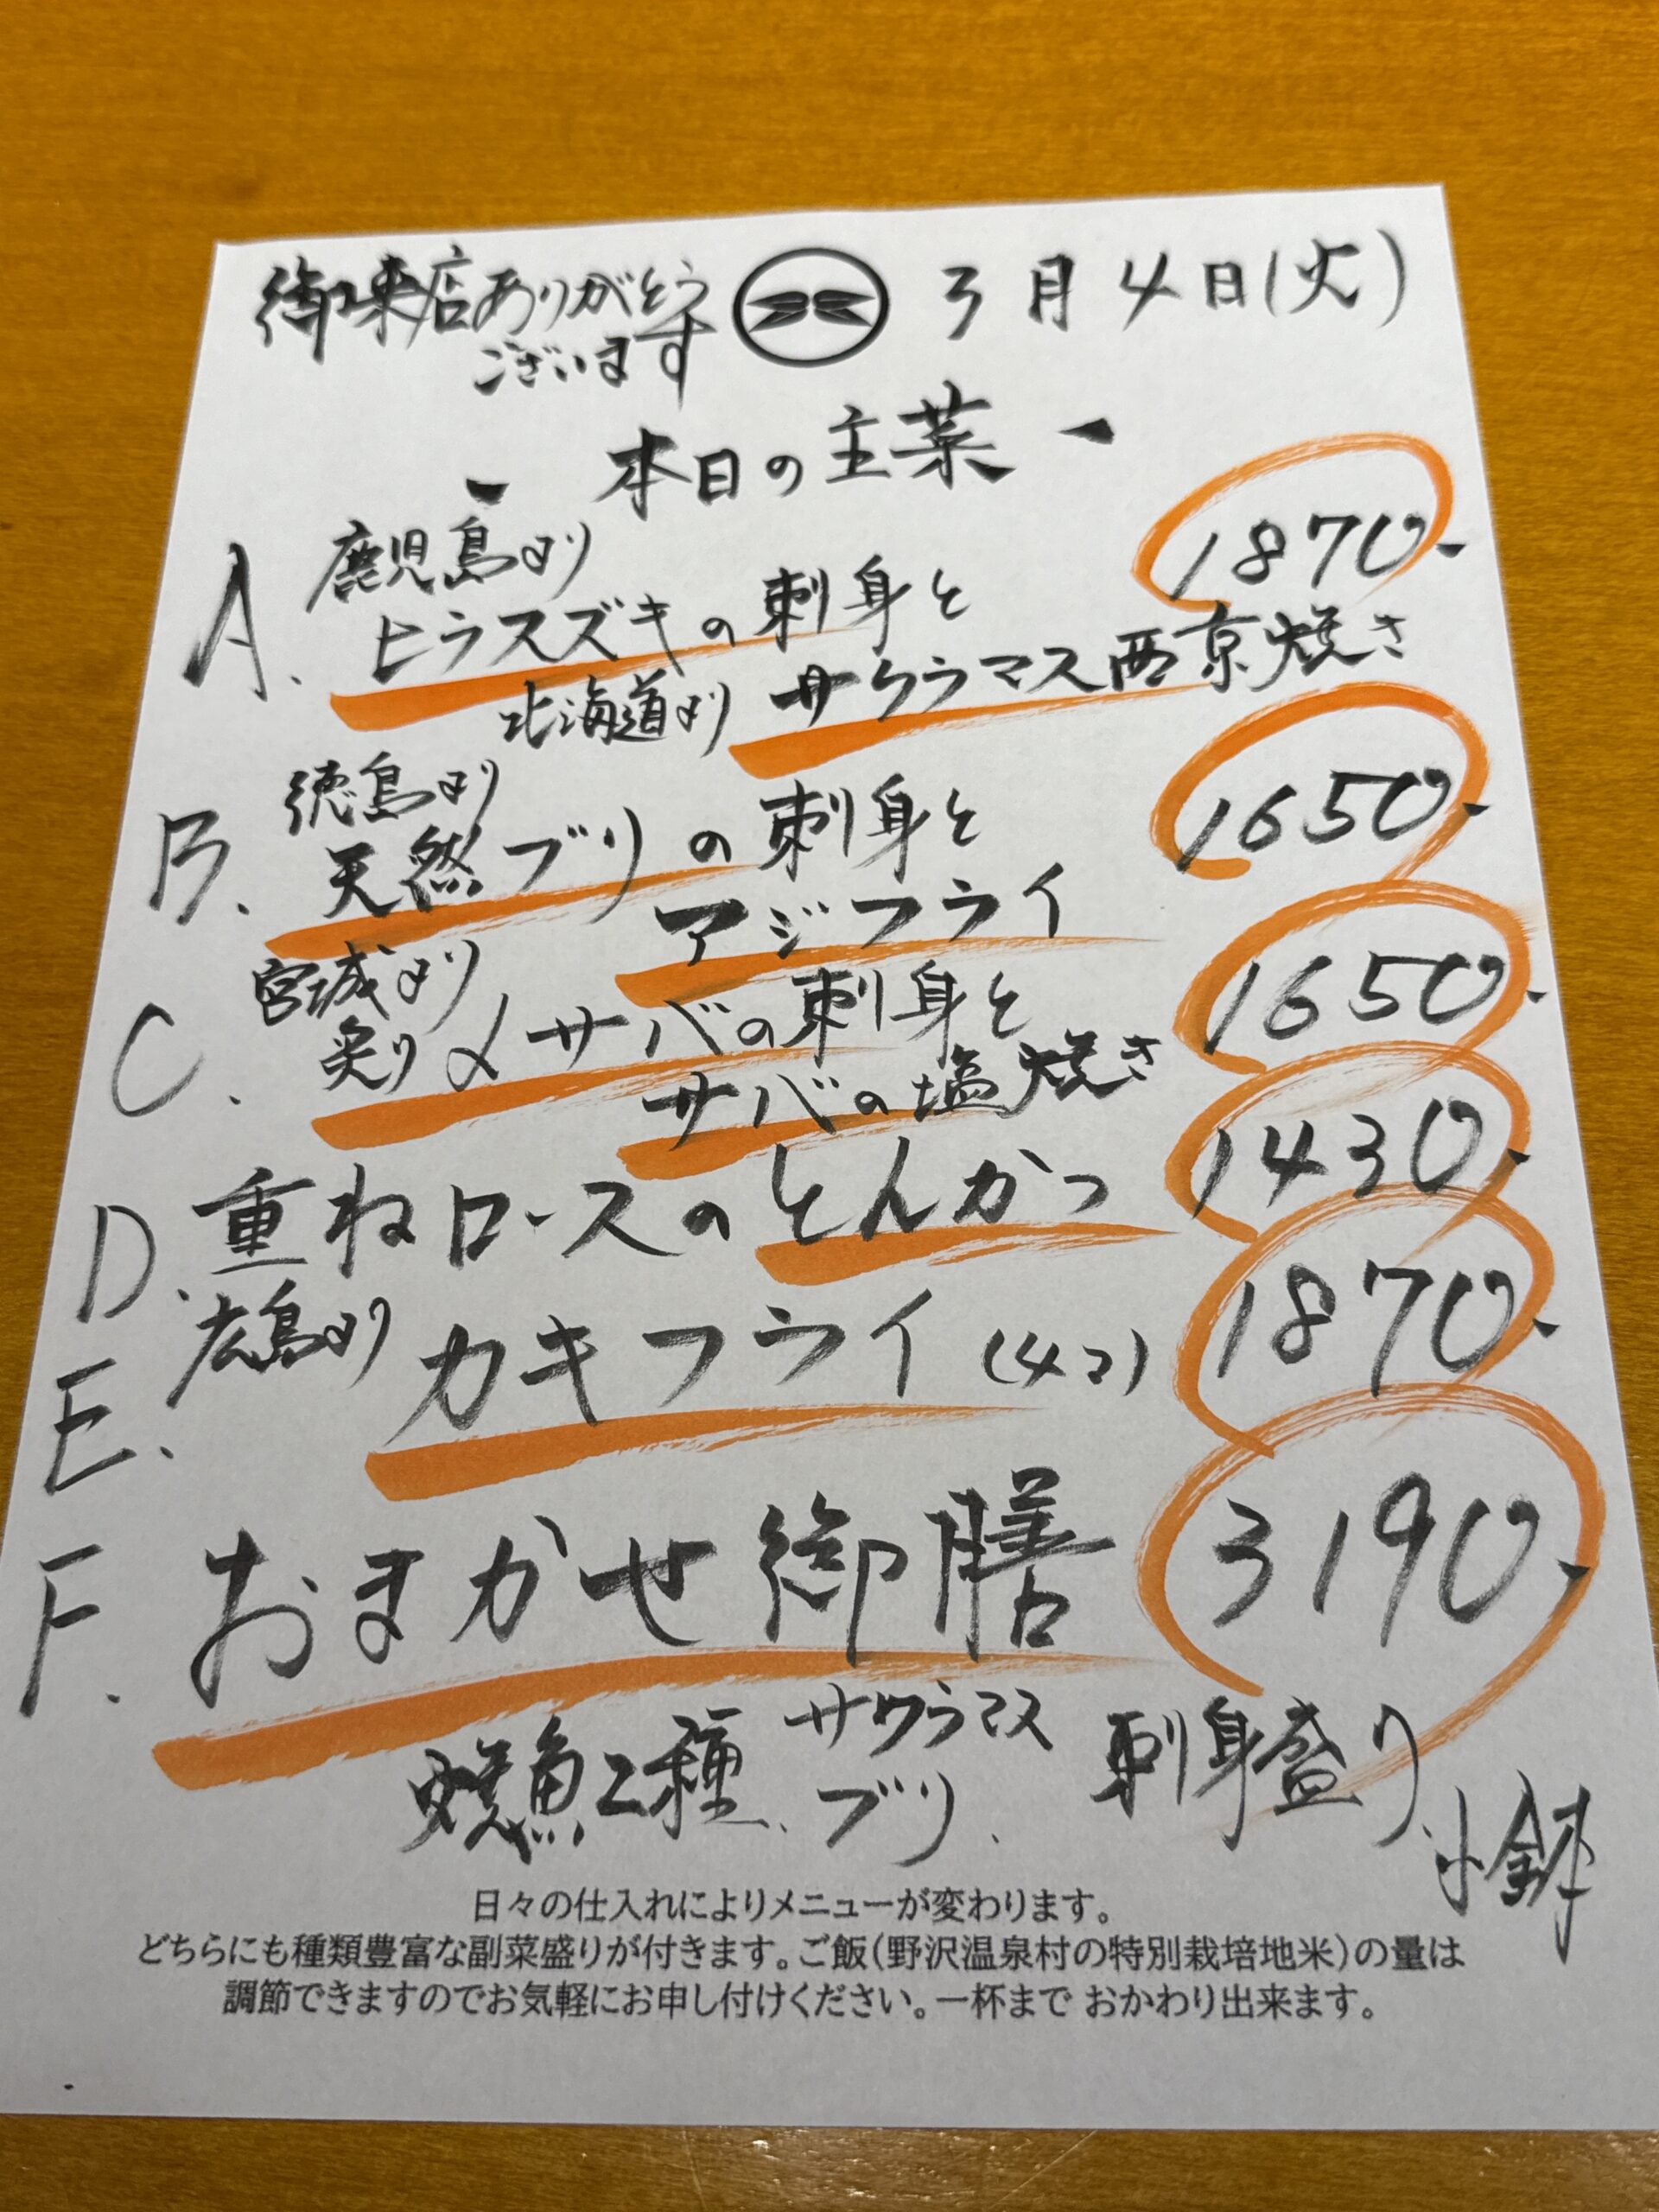 御来店ありがとう
ございます
3月4日(火)
本日の主菜
鹿児島より
A. ヒラスズキの刺身と 1870-
北海道より サクラマス西京焼き
徳島より
B. 天然ブリの刺身と 1650-
アジフライ
宮城より
C. 炙り〆サバの刺身と 1650-
サバの塩焼き
D. 重ねロースのとんかつ 1430-
広島より
E. カキフライ(4コ) 1870-
F. おまかせ御膳 3190-
焼魚2種、サクラマス
ブリ、刺身盛り、小鉢
日々の仕入れによりメニューが変わります。
どちらにも種類豊富な副菜盛りが付きます。ご飯(野沢温泉村の特別栽培地米)の量は
調節できますのでお気軽にお申し付けください。一杯まで おかわり出来ます。